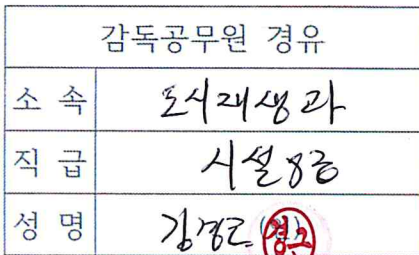 감독공무원 경유
소 속 도시재생과
직 급 시설8급
성 명 김경근